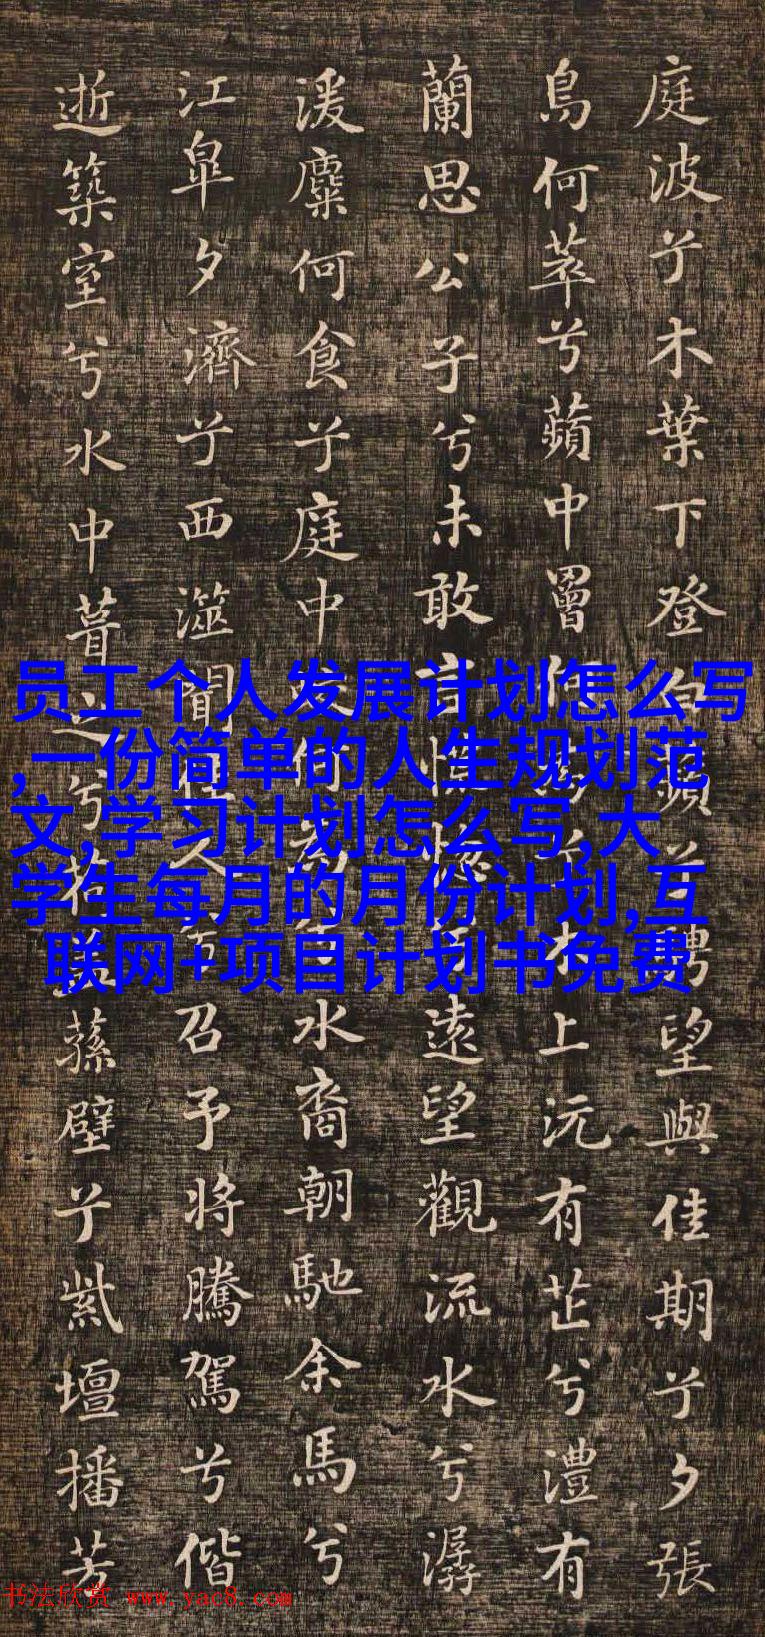 庭波兮木葉下登白蘋兮騁望與佳期兮夕張
鳥何萃兮蘋中罾何為兮木上沅有芷兮澧有
蘭思公子兮未敢言慌惚兮遠望觀流水兮潺
湲麋何食兮庭中何為兮水裔朝馳余馬兮
江皋夕濟兮西澨聞佳人兮召予將騰駕兮偕
逝築室兮水中葺之兮荷蓋蓀壁兮紫壇播芳
员工个人发展计划怎么写
,一份简单的人生规划范
文,学习计划怎么写,大
学生每月的月份计划,互
联网+项目计划书免费
书法欣赏 www.yac8.com